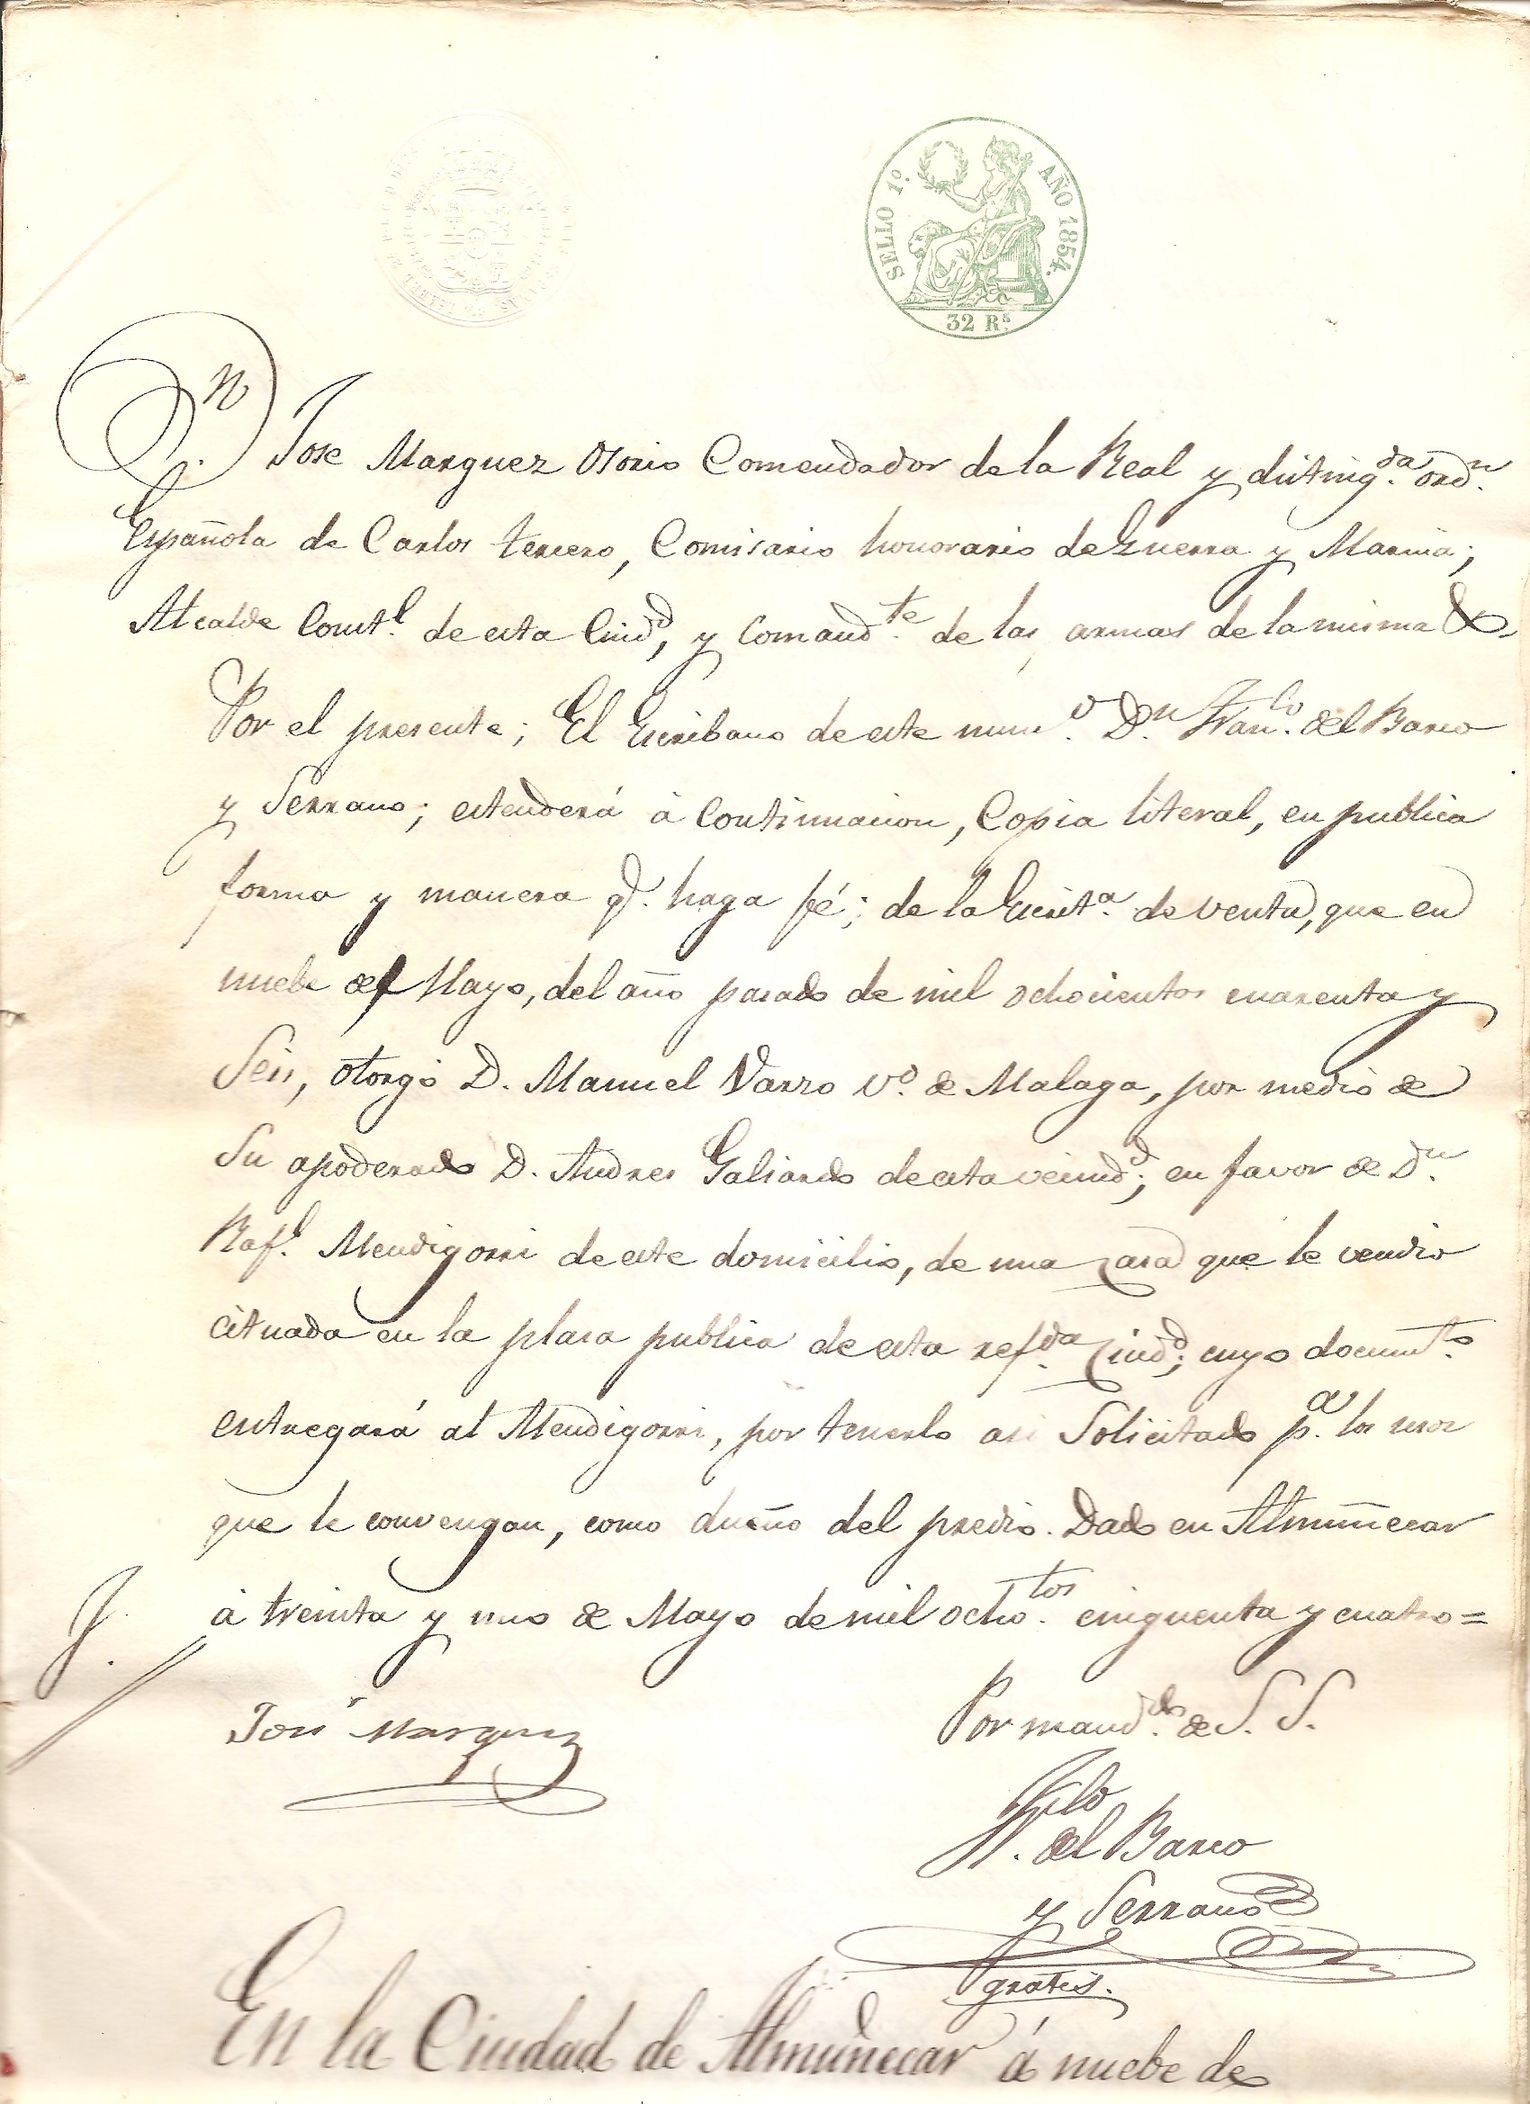 SELLO 1º. AÑO 1854.
32 Rs.
Dn. Jose Marquez Osorio Comendador de la Real y disting.da ord.n
Española de Carlos tercero, Comisario honorario de Guerra y Marina;
Alcalde Const.l de esta Ciud.d, y Comand.te de las armas de la misma &.
Por el presente; El Escribano de este num.o D.n Fran.co del Barco
y Serrano; estenderá à Continuacion, Copia literal, en publica
forma y manera q.e haga fé; de la Escrit.a de venta, que en
nuebe de Mayo, del año pasado de mil ochocientos cuarenta y
Seis, otorgó D. Manuel Varzo v.o de Malaga, por medio de
Su apoderado D. Andres Galiardo de esta vecind.d; en favor de D.n
Raf.l Mendigorri de este domicilio, de una Casa que le vendio
cituada en la plasa publica de esta ref.da Ciud.d; cuyo docum.to
entregará al Mendigorri, por tenerlo asi Solicitado p.a los usos
que le convengan, como dueño del predio. Dado en Almuñecar
à treinta y uno de Mayo de mil ocho.tos cinquenta y cuatro =
José Marquez
Por mand.do de S. S.
F.co del Barco
y Serrano
gratis.
En la Ciudad de Almuñecar á nuebe de